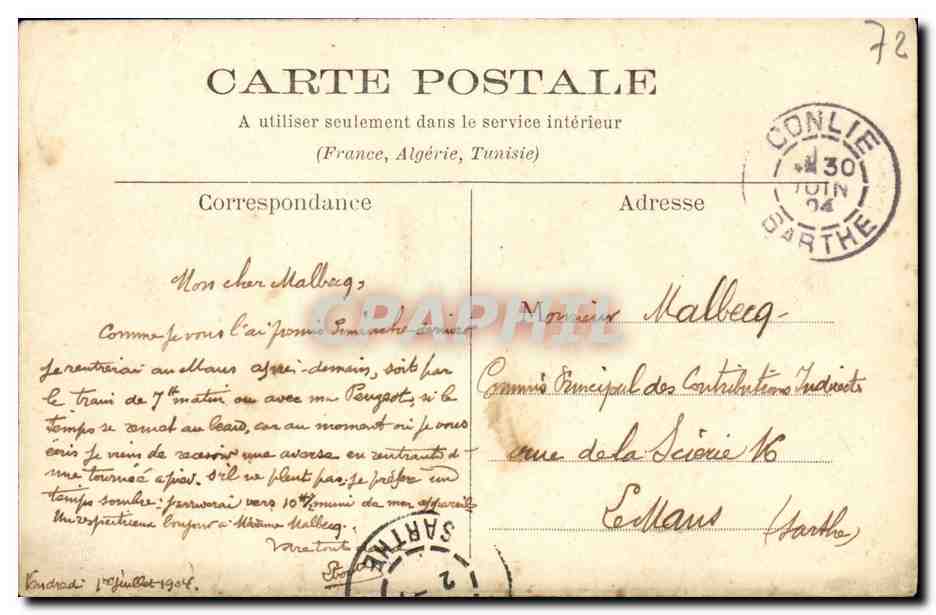 72
CARTE POSTALE
A utiliser seulement dans le service intérieur
(France, Algérie, Tunisie)
CONLIE
30
JUIN
04
SARTHE
Correspondance
Adresse
Mon cher Malbecq,
Comme je vous l'ai promis Dimanche dernier
je rentrerai au Mans après-demain, soit par
le train de 7h matin ou avec ma Peugeot, si le
temps se remet au beau, car au moment où je vous
écris je viens de recevoir une averse en rentrant d'
une tournée à pied. S'il ne pleut pas, je préfère un
temps sombre: vers 10h muni de mon appareil
Un respectueux bonjour à Madame Malbecq.
Votre tout
Vendredi 1er Juillet 1904.
Monsieur Malbecq
Commis Principal des Contributions Indirects
rue de la Scierie 16
Le Mans
(Sarthe)
SARTHE
2
CPARPHIL